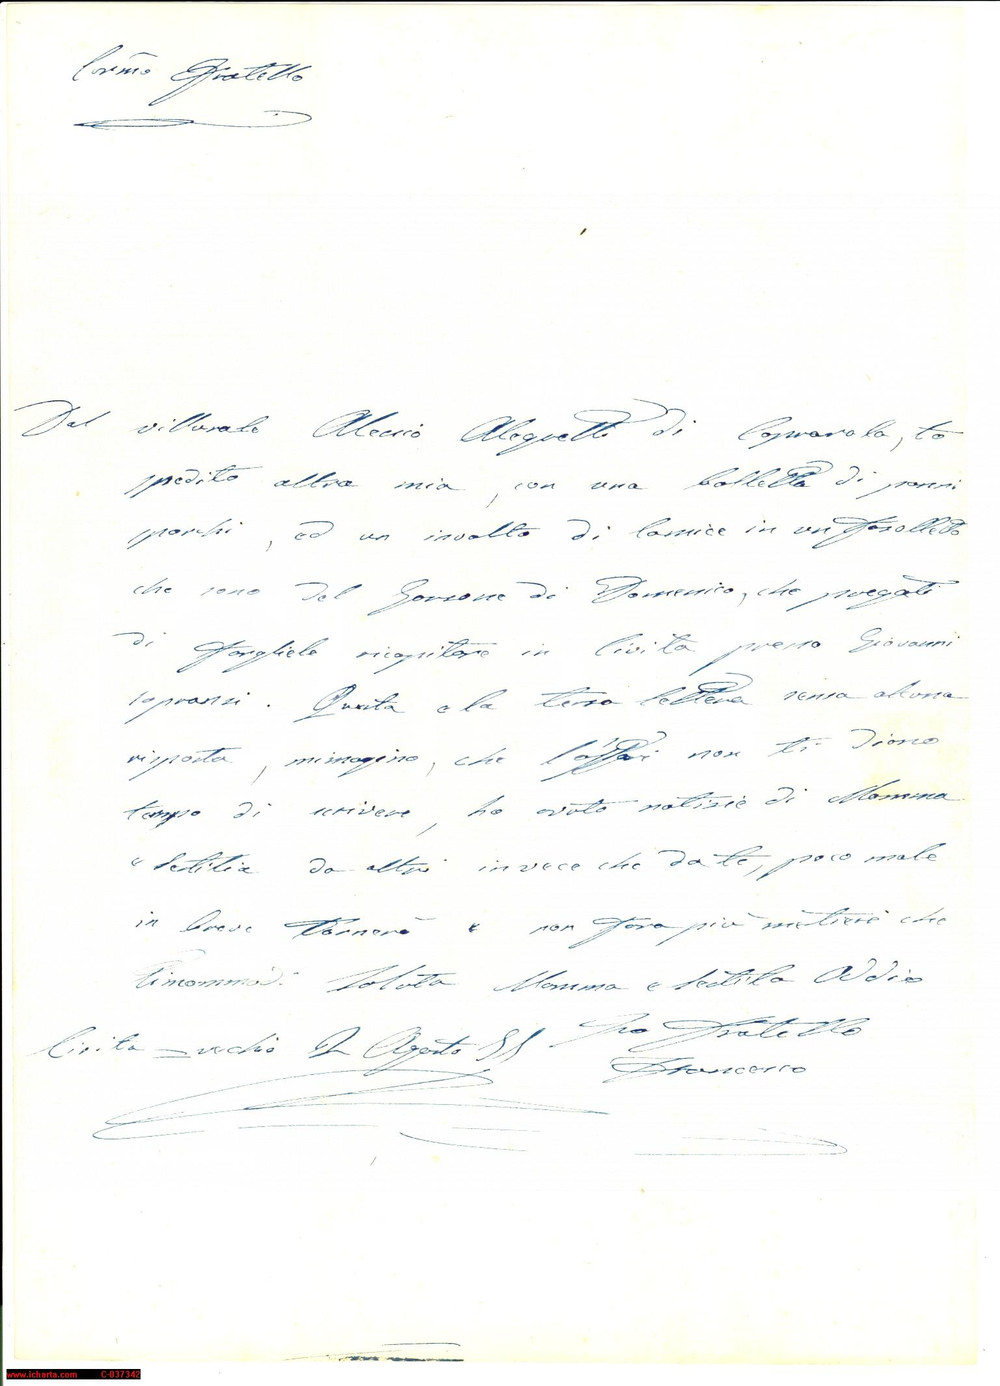 Car.mo Fratello
Dal vitturale Alessio Aloquetti di Caprarola, to
spedito altra mia, con una balletta di panni
sporchi, ed un involto di Camice in un Fasolletto
che sono del Garsone di Domenico, che pregati
di farglielo ricapitare in Civita presso Giovanni
Sopransi. Questa e la tersa lettera sensa alcuna
risposta, mimagino, che l'affari non ti diano
tempo di scrivere, ho avuto notisie di Mamma
e da altri invece che da te, poco male
in breve Tornerò e non fara più mestiere che
Salata Mamma e Addio
Civita=vechia Agosto 55 Tuo Fratello
Francesco
www.icharta.com C-037342